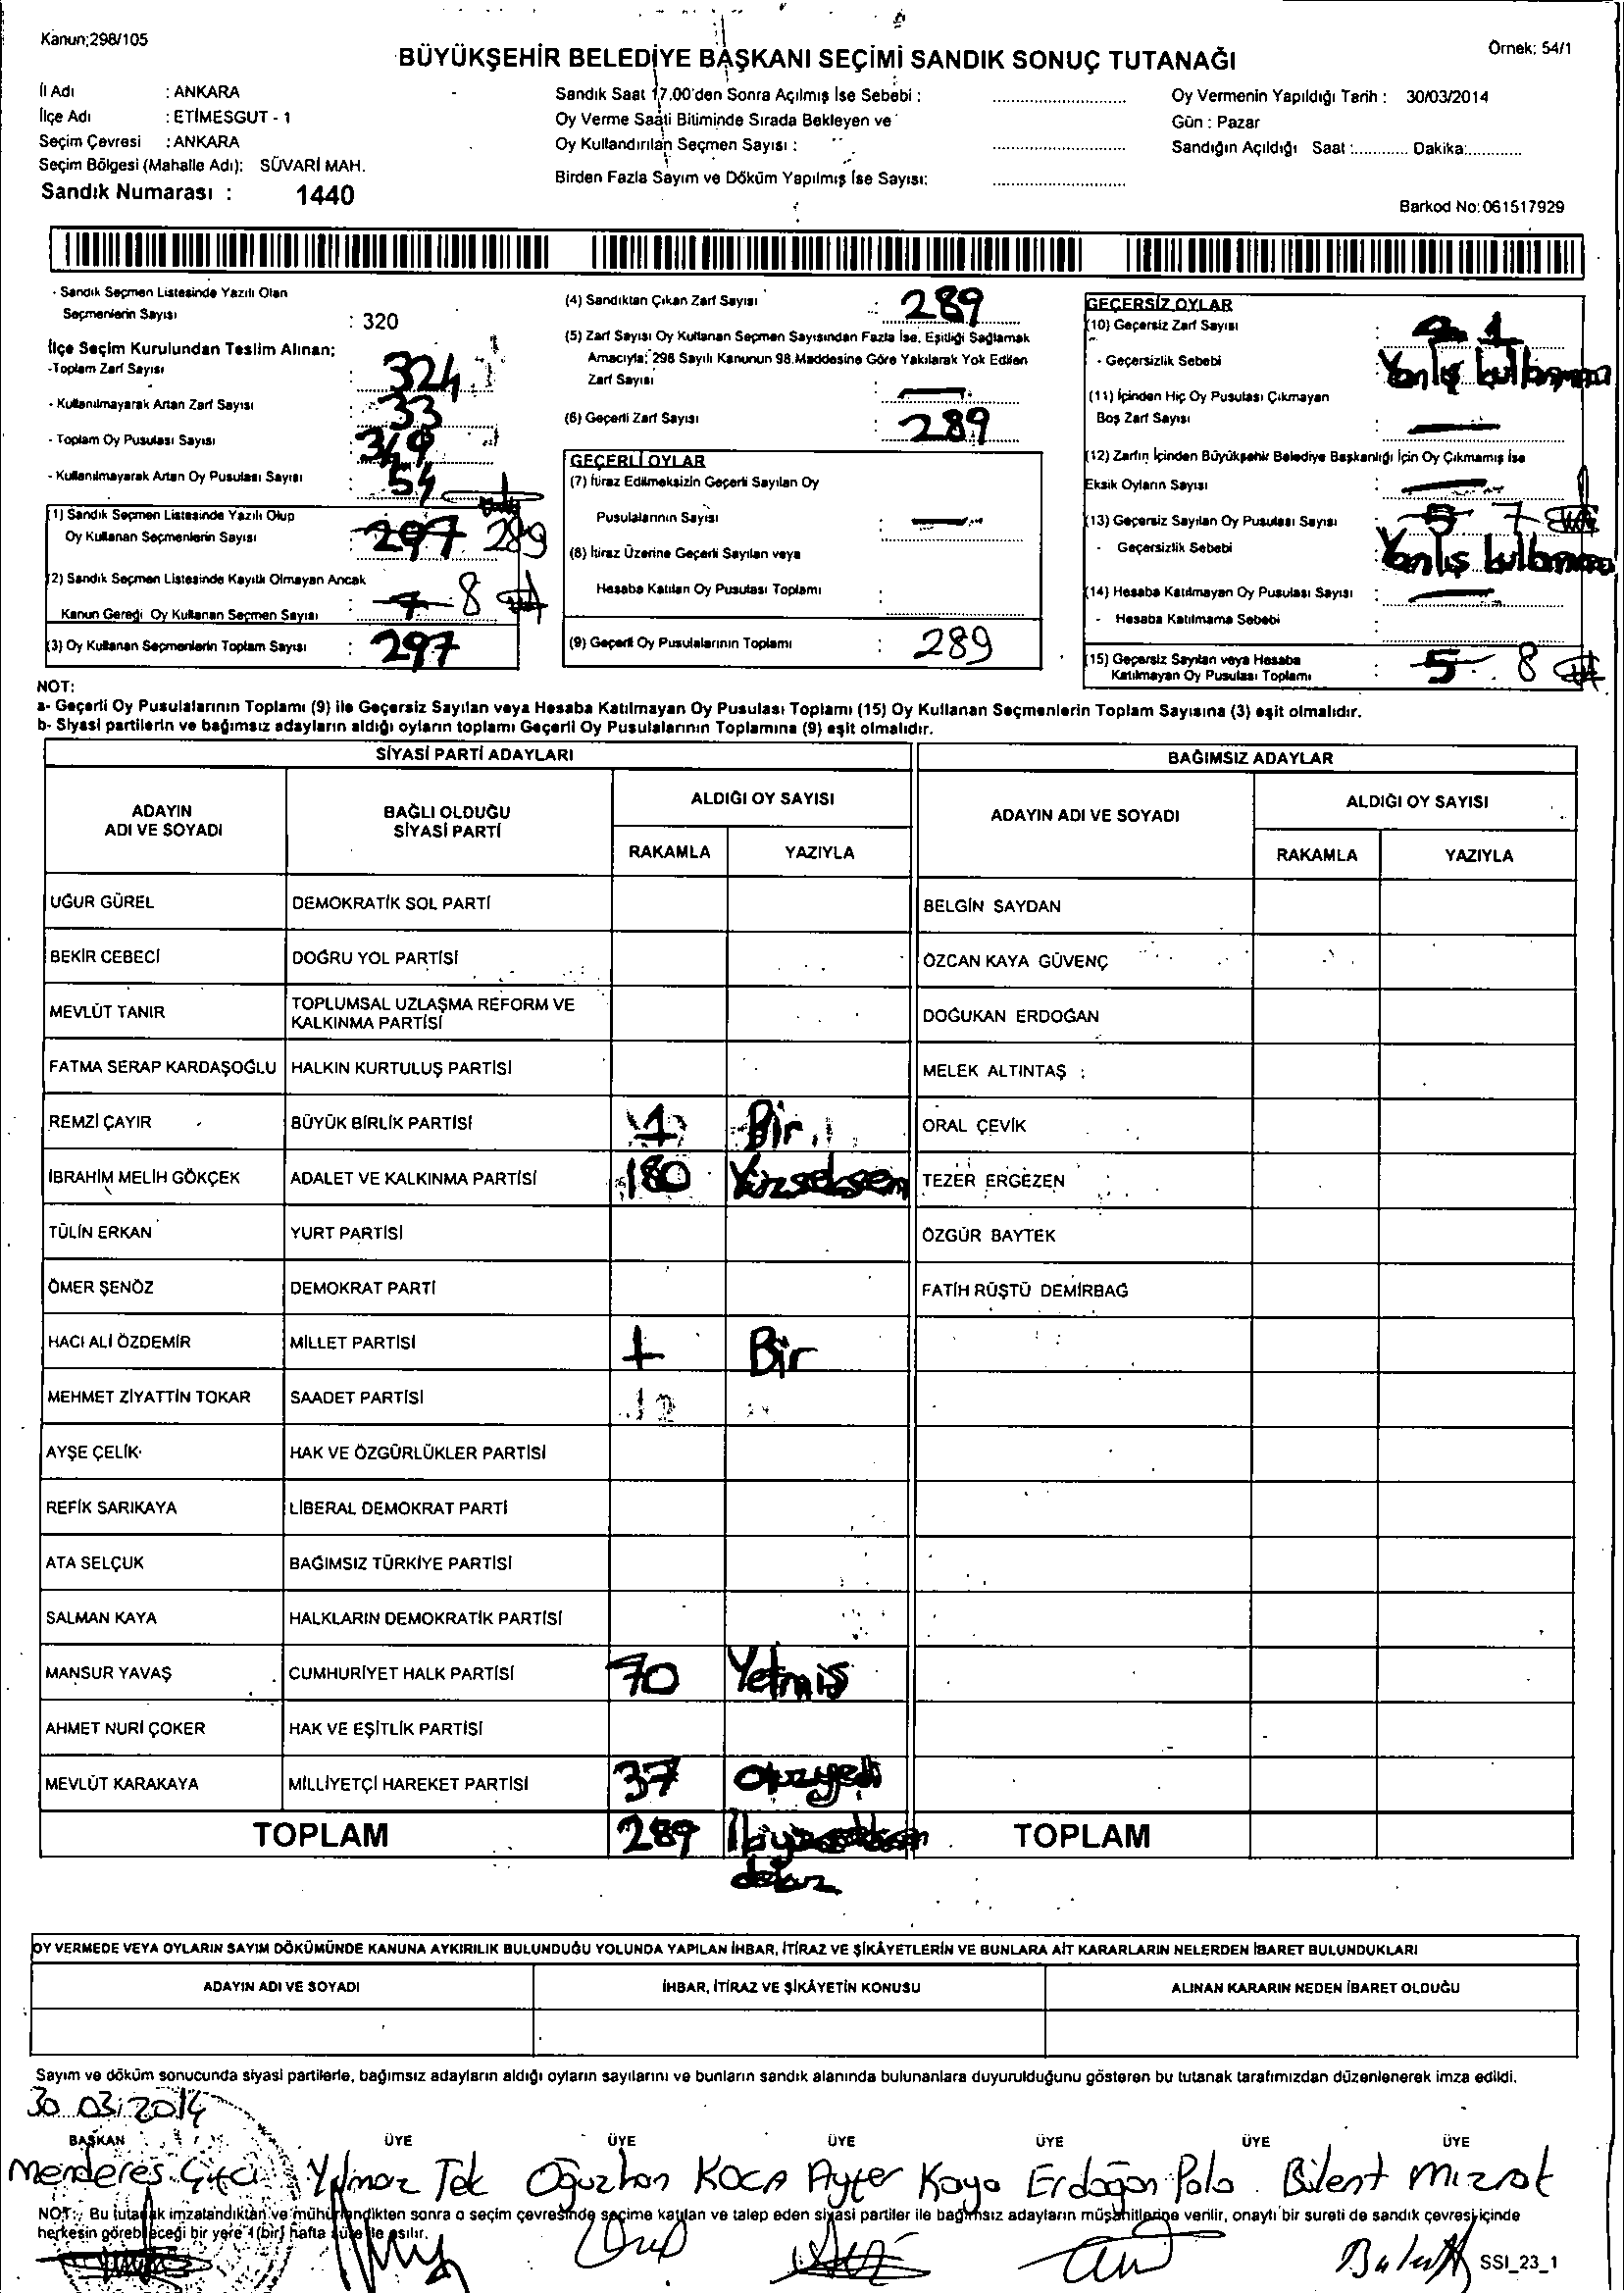 Kanun;298/105
Örnek: 54/1
BÜYÜKŞEHİR BELEDİYE BAŞKANI SEÇİMİ SANDIK SONUÇ TUTANAĞI
İl Adı : ANKARA
İlçe Adı : ETİMESGUT - 1
Seçim Çevresi : ANKARA
Seçim Bölgesi (Mahalle Adı): SÜVARİ MAH.
Sandık Numarası : 1440
Sandık Saat 17.00'den Sonra Açılmış İse Sebebi :
Oy Verme Saati Bitiminde Sırada Bekleyen ve
Oy Kullandırılan Seçmen Sayısı :
Birden Fazla Sayım ve Döküm Yapılmış İse Sayısı:
Oy Vermenin Yapıldığı Tarih : 30/03/2014
Gün : Pazar
Sandığın Açıldığı Saat :............ Dakika:............
Barkod No:061517929
- Sandık Seçmen Listesinde Yazılı Olan
Seçmenlerin Sayısı : 320
İlçe Seçim Kurulundan Teslim Alınan;
-Toplam Zarf Sayısı : 324
- Kullanılmayarak Artan Zarf Sayısı : 33
- Toplam Oy Pusulası Sayısı : 349
- Kullanılmayarak Artan Oy Pusulası Sayısı : 54
(1) Sandık Seçmen Listesinde Yazılı Olup
Oy Kullanan Seçmenlerin Sayısı : 297 289
(2) Sandık Seçmen Listesinde Kayıtlı Olmayan Ancak
Kanun Gereği Oy Kullanan Seçmen Sayısı : 7 8
(3) Oy Kullanan Seçmenlerin Toplam Sayısı : 297
(4) Sandıktan Çıkan Zarf Sayısı : 289
(5) Zarf Sayısı Oy Kullanan Seçmen Sayısından Fazla İse, Eşitliği Sağlamak
Amacıyla; 298 Sayılı Kanunun 98.Maddesine Göre Yakılarak Yok Edilen
Zarf Sayısı : —
(6) Geçerli Zarf Sayısı : 289
GEÇERLİ OYLAR
(7) İtiraz Edilmeksizin Geçerli Sayılan Oy
Pusulalarının Sayısı : —
(8) İtiraz Üzerine Geçerli Sayılan veya
Hesaba Katılan Oy Pusulası Toplamı :
(9) Geçerli Oy Pusulalarının Toplamı : 289
GEÇERSİZ OYLAR
(10) Geçersiz Zarf Sayısı : 1
- Geçersizlik Sebebi : Yanlış kullanma
(11) İçinden Hiç Oy Pusulası Çıkmayan
Boş Zarf Sayısı : —
(12) Zarfın İçinden Büyükşehir Belediye Başkanlığı İçin Oy Çıkmamış İse
Eksik Oyların Sayısı : —
(13) Geçersiz Sayılan Oy Pusulası Sayısı : 5 7
- Geçersizlik Sebebi : Yanlış kullanma
(14) Hesaba Katılmayan Oy Pusulası Sayısı : —
- Hesaba Katılmama Sebebi :
(15) Geçersiz Sayılan veya Hesaba
Katılmayan Oy Pusulası Toplamı : 5 8
NOT:
a- Geçerli Oy Pusulalarının Toplamı (9) ile Geçersiz Sayılan veya Hesaba Katılmayan Oy Pusulası Toplamı (15) Oy Kullanan Seçmenlerin Toplam Sayısına (3) eşit olmalıdır.
b- Siyasi partilerin ve bağımsız adayların aldığı oyların toplamı Geçerli Oy Pusulalarının Toplamına (9) eşit olmalıdır.
SİYASİ PARTİ ADAYLARI
BAĞIMSIZ ADAYLAR
ADAYIN ADI VE SOYADI
BAĞLI OLDUĞU SİYASİ PARTİ
ALDIĞI OY SAYISI
RAKAMLA YAZIYLA
ADAYIN ADI VE SOYADI
ALDIĞI OY SAYISI
RAKAMLA YAZIYLA
UĞUR GÜREL DEMOKRATİK SOL PARTİ BELGİN SAYDAN
BEKİR CEBECİ DOĞRU YOL PARTİSİ ÖZCAN KAYA GÜVENÇ
MEVLÜT TANIR TOPLUMSAL UZLAŞMA REFORM VE KALKINMA PARTİSİ DOĞUKAN ERDOĞAN
FATMA SERAP KARDAŞOĞLU HALKIN KURTULUŞ PARTİSİ MELEK ALTINTAŞ
REMZİ ÇAYIR BÜYÜK BİRLİK PARTİSİ 1 Bir ORAL ÇEVİK
İBRAHİM MELİH GÖKÇEK ADALET VE KALKINMA PARTİSİ 180 Yüzseksen TEZER ERGEZEN
TÜLİN ERKAN YURT PARTİSİ ÖZGÜR BAYTEK
ÖMER ŞENÖZ DEMOKRAT PARTİ FATİH RÜŞTÜ DEMİRBAĞ
HACI ALİ ÖZDEMİR MİLLET PARTİSİ 1 Bir
MEHMET ZİYATTİN TOKAR SAADET PARTİSİ
AYŞE ÇELİK HAK VE ÖZGÜRLÜKLER PARTİSİ
REFİK SARIKAYA LİBERAL DEMOKRAT PARTİ
ATA SELÇUK BAĞIMSIZ TÜRKİYE PARTİSİ
SALMAN KAYA HALKLARIN DEMOKRATİK PARTİSİ
MANSUR YAVAŞ CUMHURİYET HALK PARTİSİ 70 Yetmiş
AHMET NURİ ÇOKER HAK VE EŞİTLİK PARTİSİ
MEVLÜT KARAKAYA MİLLİYETÇİ HAREKET PARTİSİ 37 Otuzyedi
TOPLAM 289 İkiyüzseksen TOPLAM
dokuz
OY VERMEDE VEYA OYLARIN SAYIM DÖKÜMÜNDE KANUNA AYKIRILIK BULUNDUĞU YOLUNDA YAPILAN İHBAR, İTİRAZ VE ŞİKÂYETLERİN VE BUNLARA AİT KARARLARIN NELERDEN İBARET BULUNDUKLARI
ADAYIN ADI VE SOYADI İHBAR, İTİRAZ VE ŞİKÂYETİN KONUSU ALINAN KARARIN NEDEN İBARET OLDUĞU
Sayım ve döküm sonucunda siyasi partilerle, bağımsız adayların aldığı oyların sayılarını ve bunların sandık alanında bulunanlara duyurulduğunu gösteren bu tutanak tarafımızdan düzenlenerek imza edildi.
30.03.2014
BAŞKAN ÜYE ÜYE ÜYE ÜYE ÜYE ÜYE
Menderes Çiftçi Yılmaz Tek Oğuzhan KOCA Ayfer Kaya Erdoğan Pola Bülent Mızrak
NOT: Bu tutanak imzalandıktan ve mühürlendikten sonra o seçim çevresinde seçime katılan ve talep eden siyasi partiler ile bağımsız adayların müşahitlerine verilir, onaylı bir sureti de sandık çevresi içinde
herkesin görebileceği bir yere 1 (bir) hafta süre ile asılır.
SSI_23_1